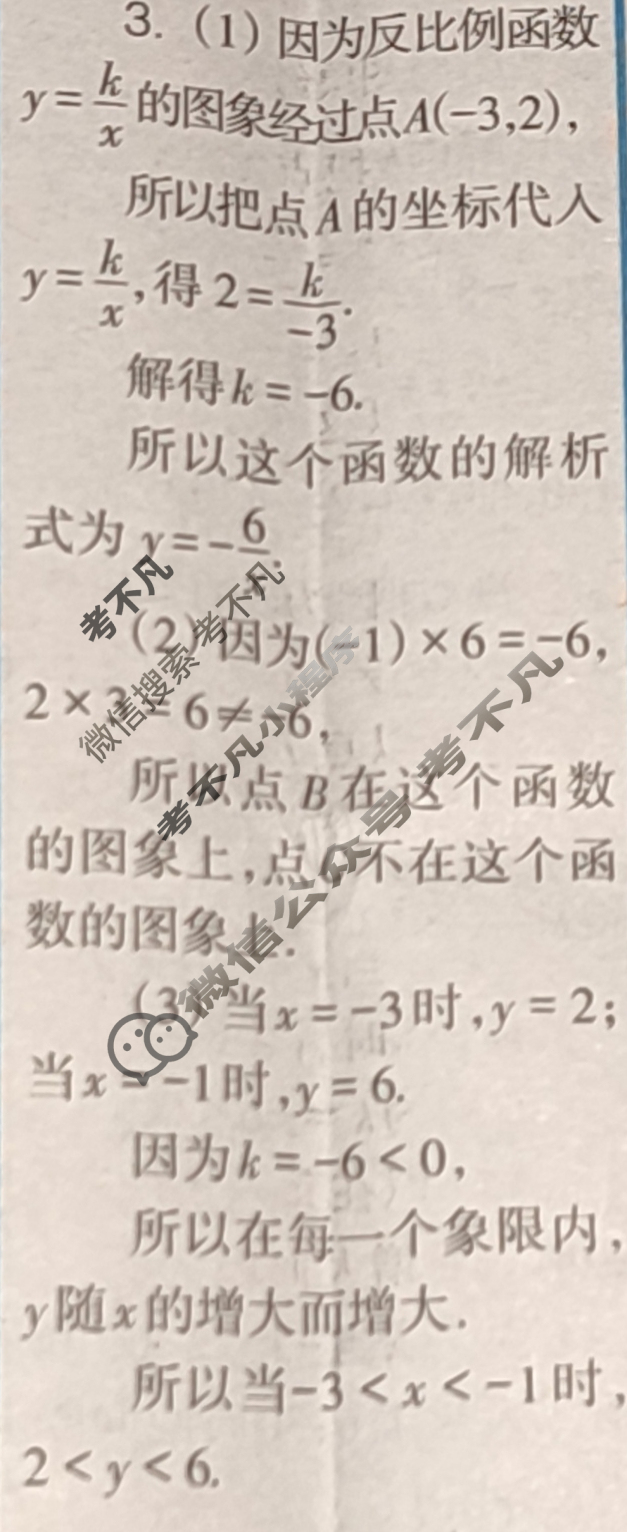 3. (1) 因为反比例函数
y=k/x 的图象经过点A(-3,2),
所以把点A的坐标代入
y=k/x,得2=k/-3.
解得k=-6.
所以这个函数的解析
式为 y=-6/x.
(2) 因为(-1)×6=-6,
2×3=6≠-6,
所以点B在这个函数
的图象上,点 不在这个函
数的图象上.
(3) 当x=-3时,y=2;
当x=-1时,y=6.
因为k=-6<0,
所以在每一个象限内,
y随x的增大而增大.
所以当-3<x<-1时,
2<y<6.
考不凡
微信搜索 考不凡
考不凡小程序
微信公众号:考不凡